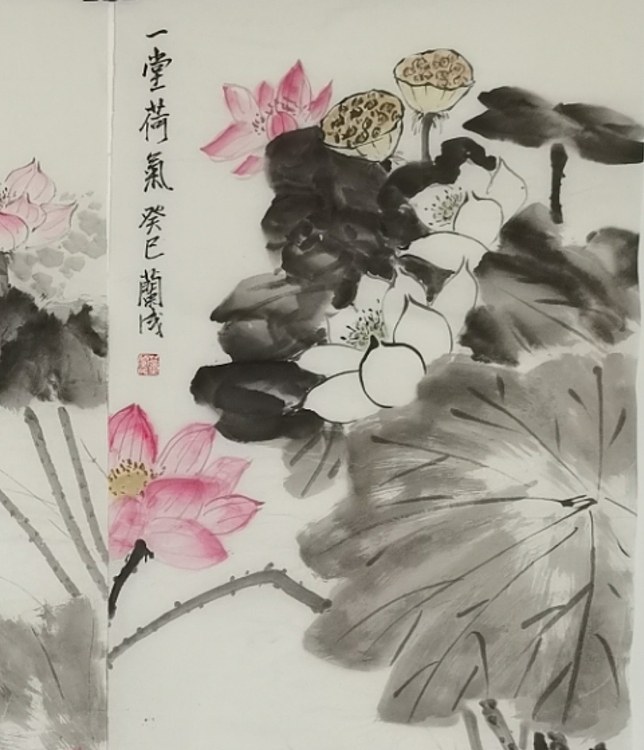 一堂荷氣 癸巳 蘭成